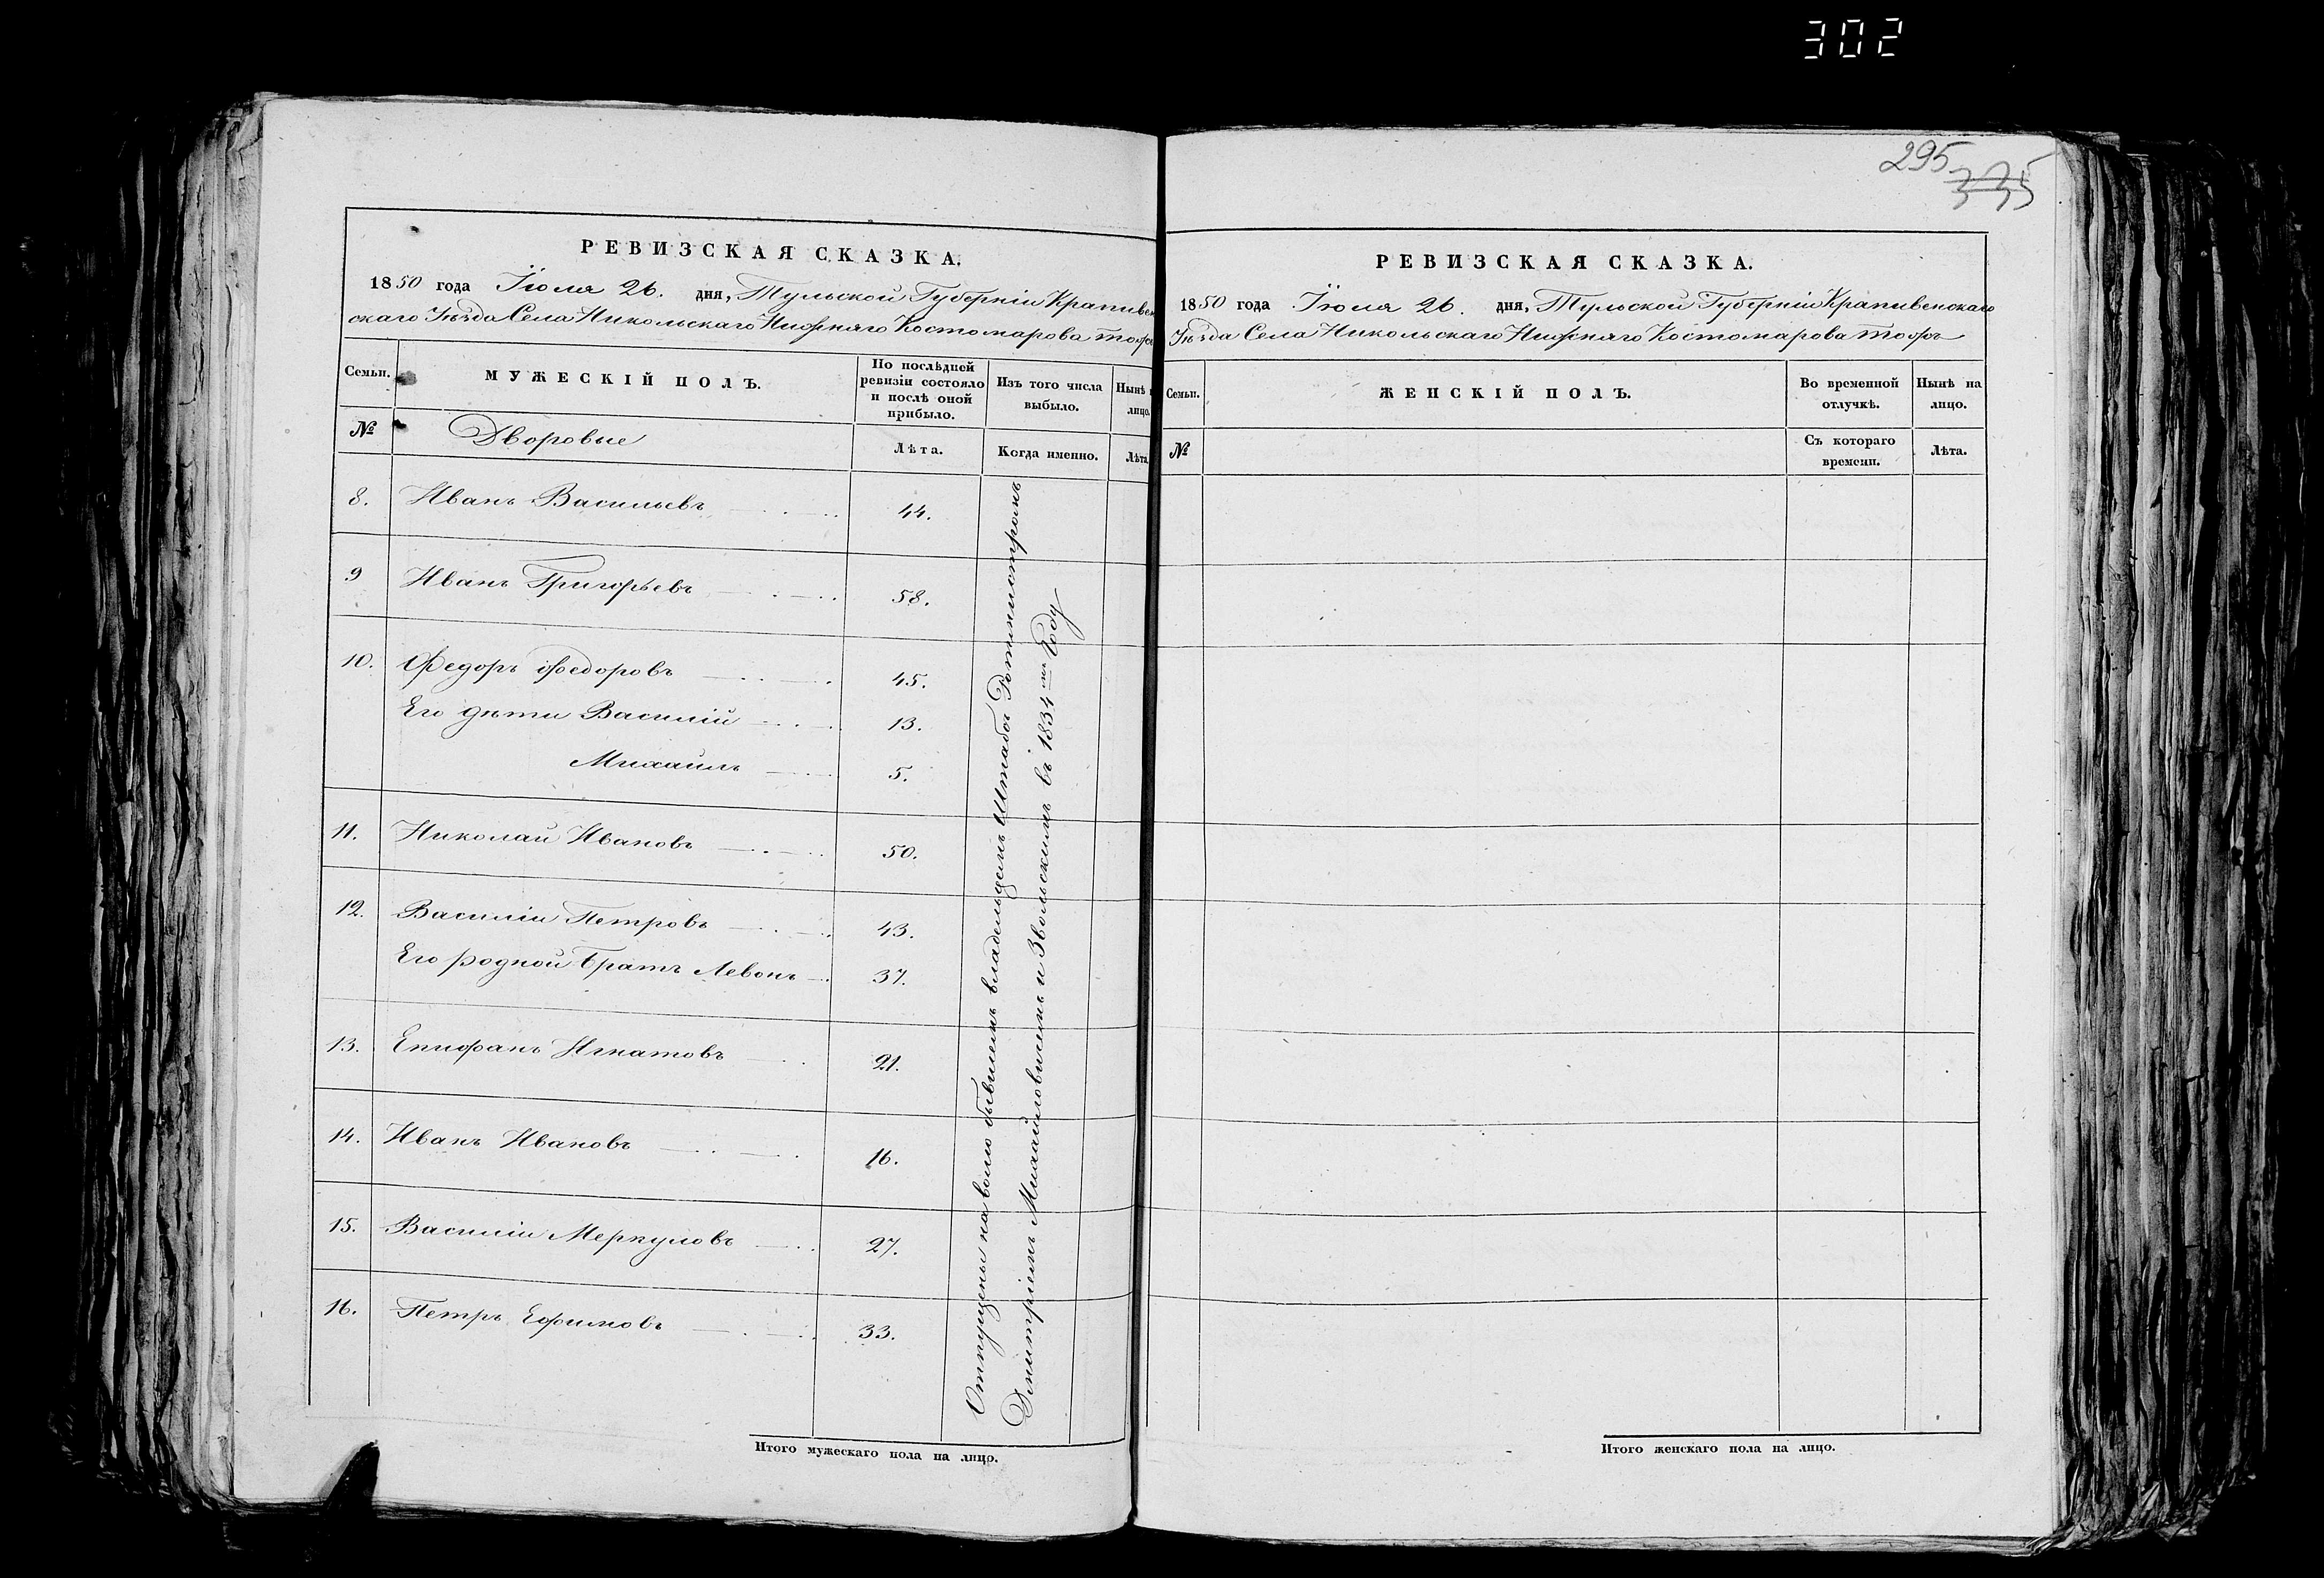 302
295
335
РЕВИЗСКАЯ СКАЗКА.
1850 года Іюля 26. дня, Тульской Губерніи Крапивен
скаго Уѣзда Села Никольскаго Нижняго Костомарова тожъ
Семьи.
МУЖЕСКІЙ ПОЛЪ.
По послѣдней
ревизіи состояло
и послѣ оной
прибыло.
Изъ того числа
выбыло.
Нынѣ
лицо.
№
Дворовые
Лѣта.
Когда именно.
Лѣта
8. Иванъ Васильевъ 44.
9 Иванъ Григорьевъ 58.
10. Федоръ Федоровъ 45.
Его дѣти Василій 13.
Михаилъ 5.
11. Николай Ивановъ 50.
12. Василіи Петровъ 43.
Его родной братъ Левонъ 37.
13. Епифанъ Игнатовъ 21.
14. Иванъ Ивановъ 16.
15. Василіи Меркуловъ 27.
16. Петръ Ефимовъ 33.
Отпущены на волю бывшемъ владельцемъ Штабъ Ротмистромъ
Дмитріемъ Михайловичемъ Извольскимъ въ 1834мъ Году
Итого мужескаго пола на лицо.
РЕВИЗСКАЯ СКАЗКА.
1850 года Іюля 26. дня, Тульской Губерніи Крапивенскаго
Уѣзда Села Никольскаго Нижняго Костомарова тожъ
Семьи.
ЖЕНСКІЙ ПОЛЪ.
Во временной
отлучкѣ.
Нынѣ на
лицо.
№
Съ котораго
времени.
Лѣта.
Итого женскаго пола на лицо.